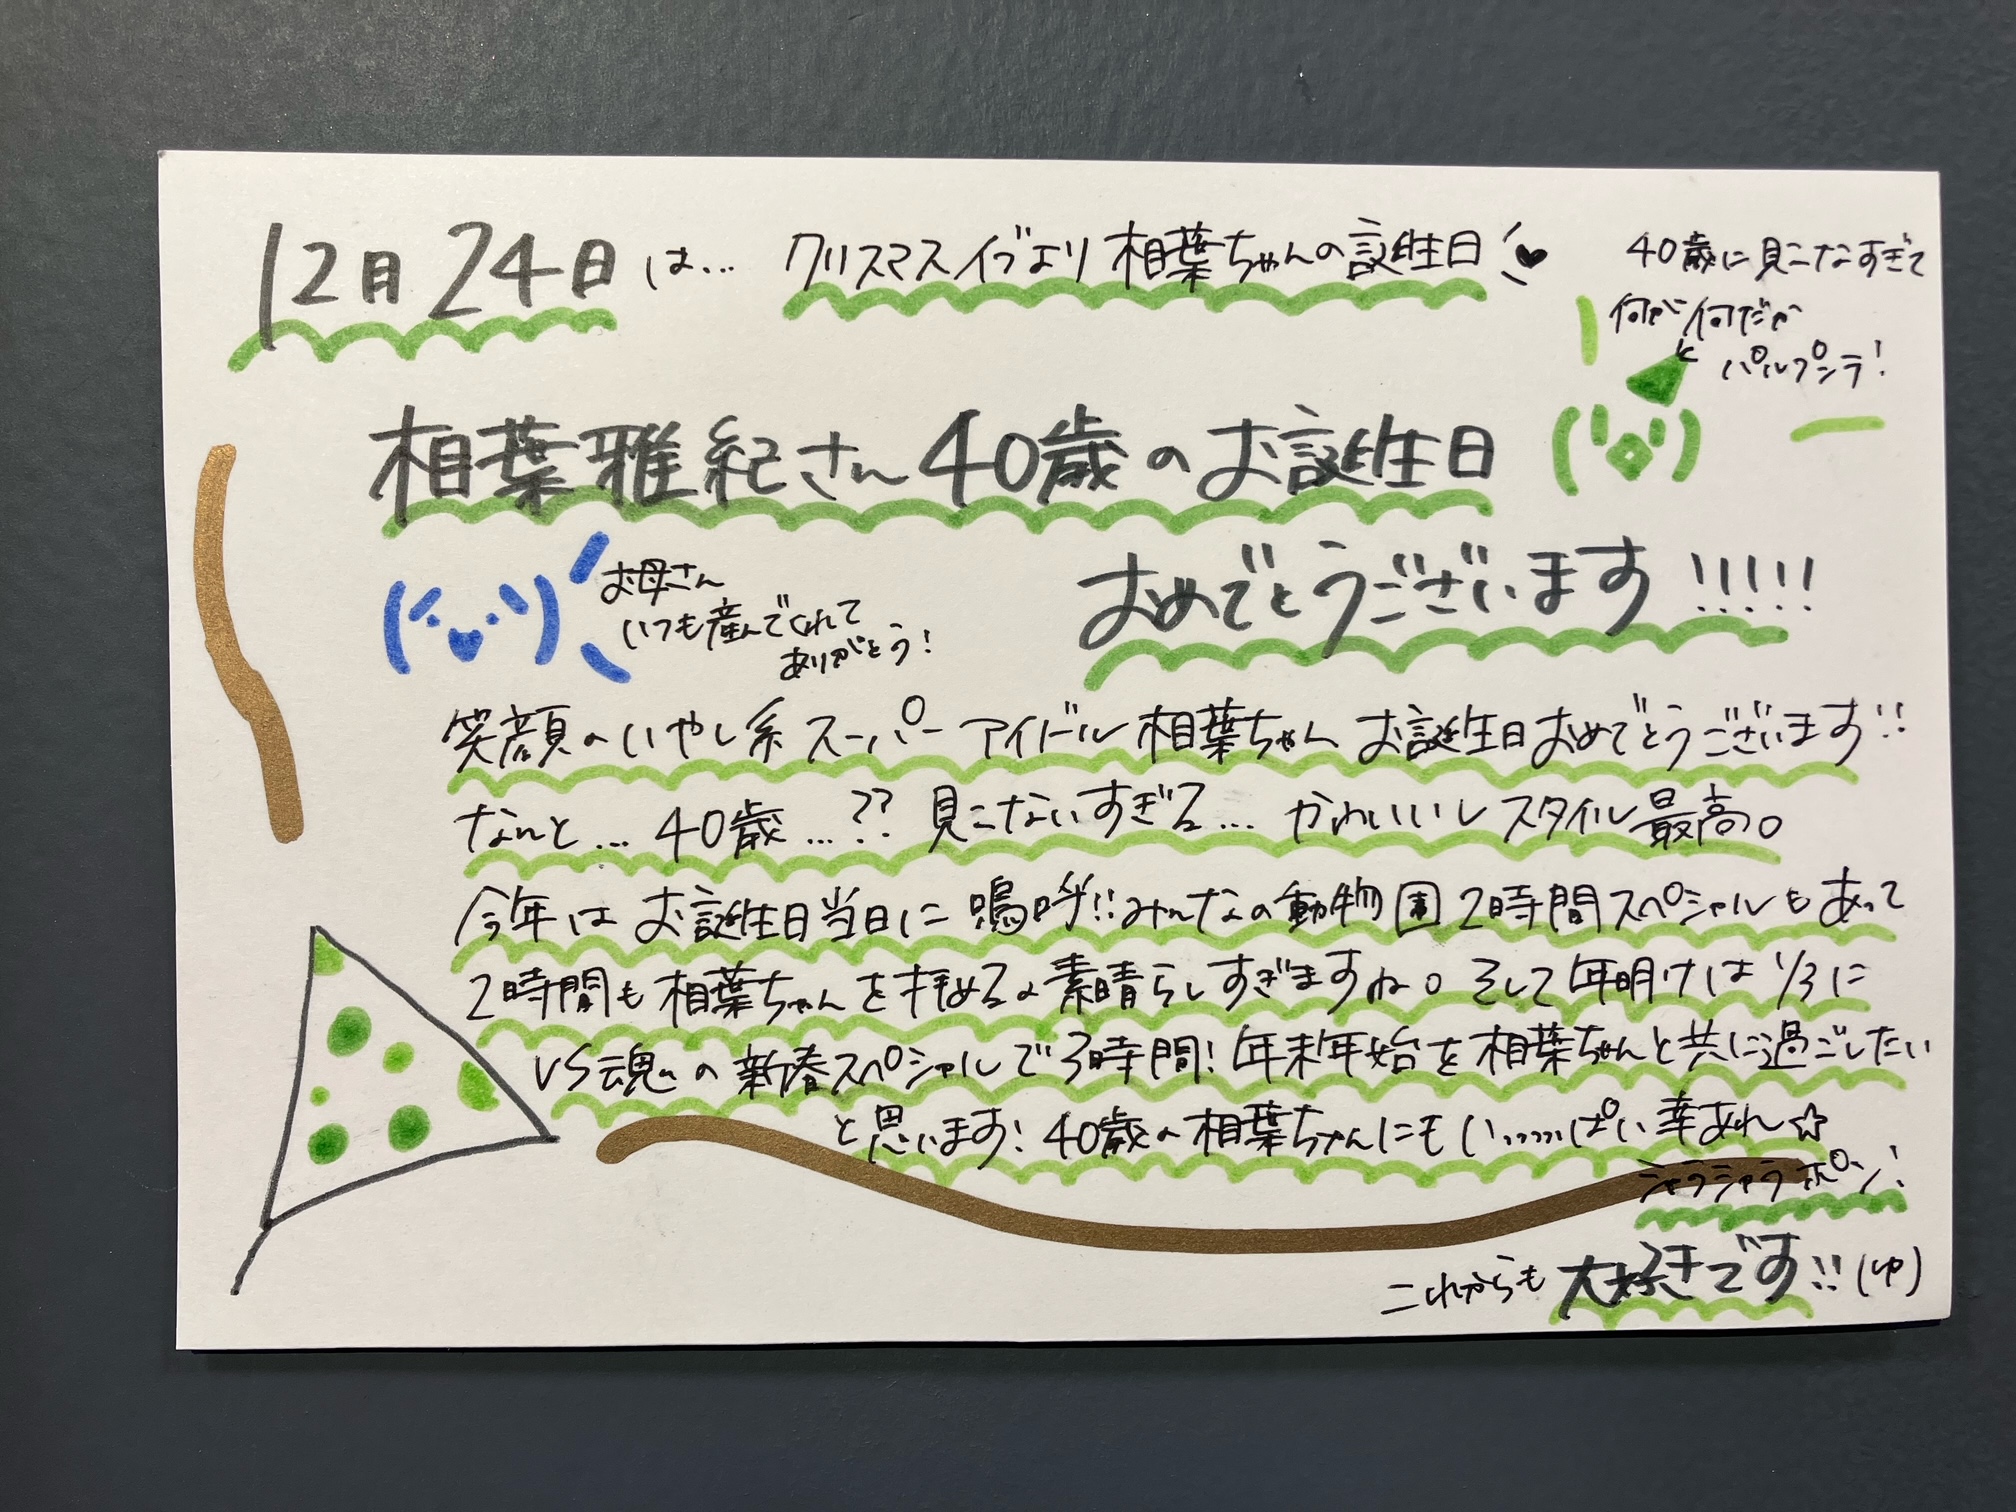 12月24日は… クリスマスイブより相葉ちゃんの誕生日
40歳に見えなすぎて
何が何だか
パルプンテ!
相葉雅紀さん40歳のお誕生日
おめでとうございます!!!!!
お母さん
いつも産んでくれて
ありがとう!
笑顔のいやし系スーパーアイドル相葉ちゃんお誕生日おめでとうございます!!
なんと…40歳…??見えないすぎる…かわいいしスタイル最高。
今年はお誕生日当日に嗚呼!!みんなの動物園2時間スペシャルもあって
2時間も相葉ちゃんを拝めるの素晴らしすぎますね。そして年明けは1/3に
VS魂の新春スペシャルで3時間!年末年始を相葉ちゃんと共に過ごしたい
と思います!40歳の相葉ちゃんにもいっっっぱい幸あれ☆
シャラシャラポン!
これからも大好きです!!(ゆ)